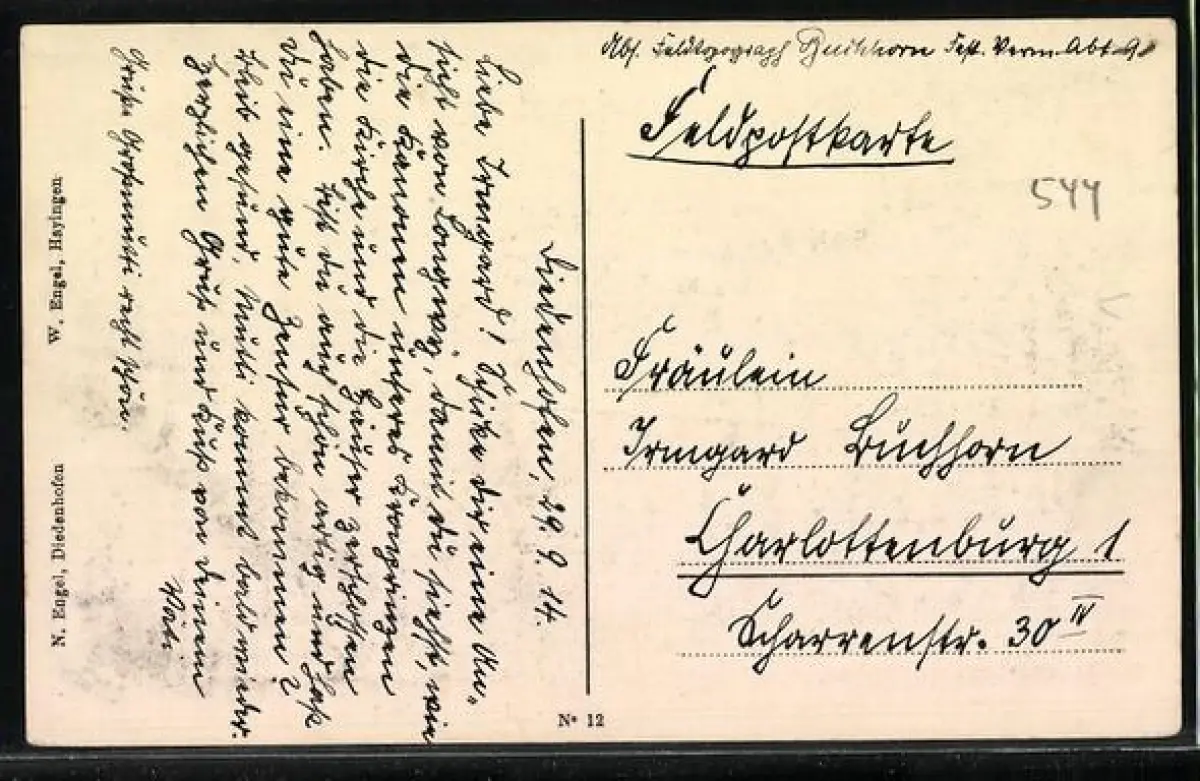 Abs. Feldtopograph Buchhorn Fest. Verm. Abt.
Feldpostkarte
544
Fräulein
Irmgard Buchhorn
Charlottenburg 1
Scharrenstr. 30 IV
Diedenhofen, 29. 9. 14.
Liebe Irmgard! Schicke dir eine An„
sicht von Longwy, damit du siehst, wie
die Kanonen unseres Kronprinzen
die Kirche und die Häuser zerschossen
haben. Bist du auch schön artig und hast
du eine gute Zensur bekommen?
Bleib gesund, Mutti kommt bald wieder.
Herzlichen Gruß und Kuß von deinem
Vati.
Grüße Großmutti recht schön.
N. Engel, Diedenhofen
W. Engel, Hayingen
No 12